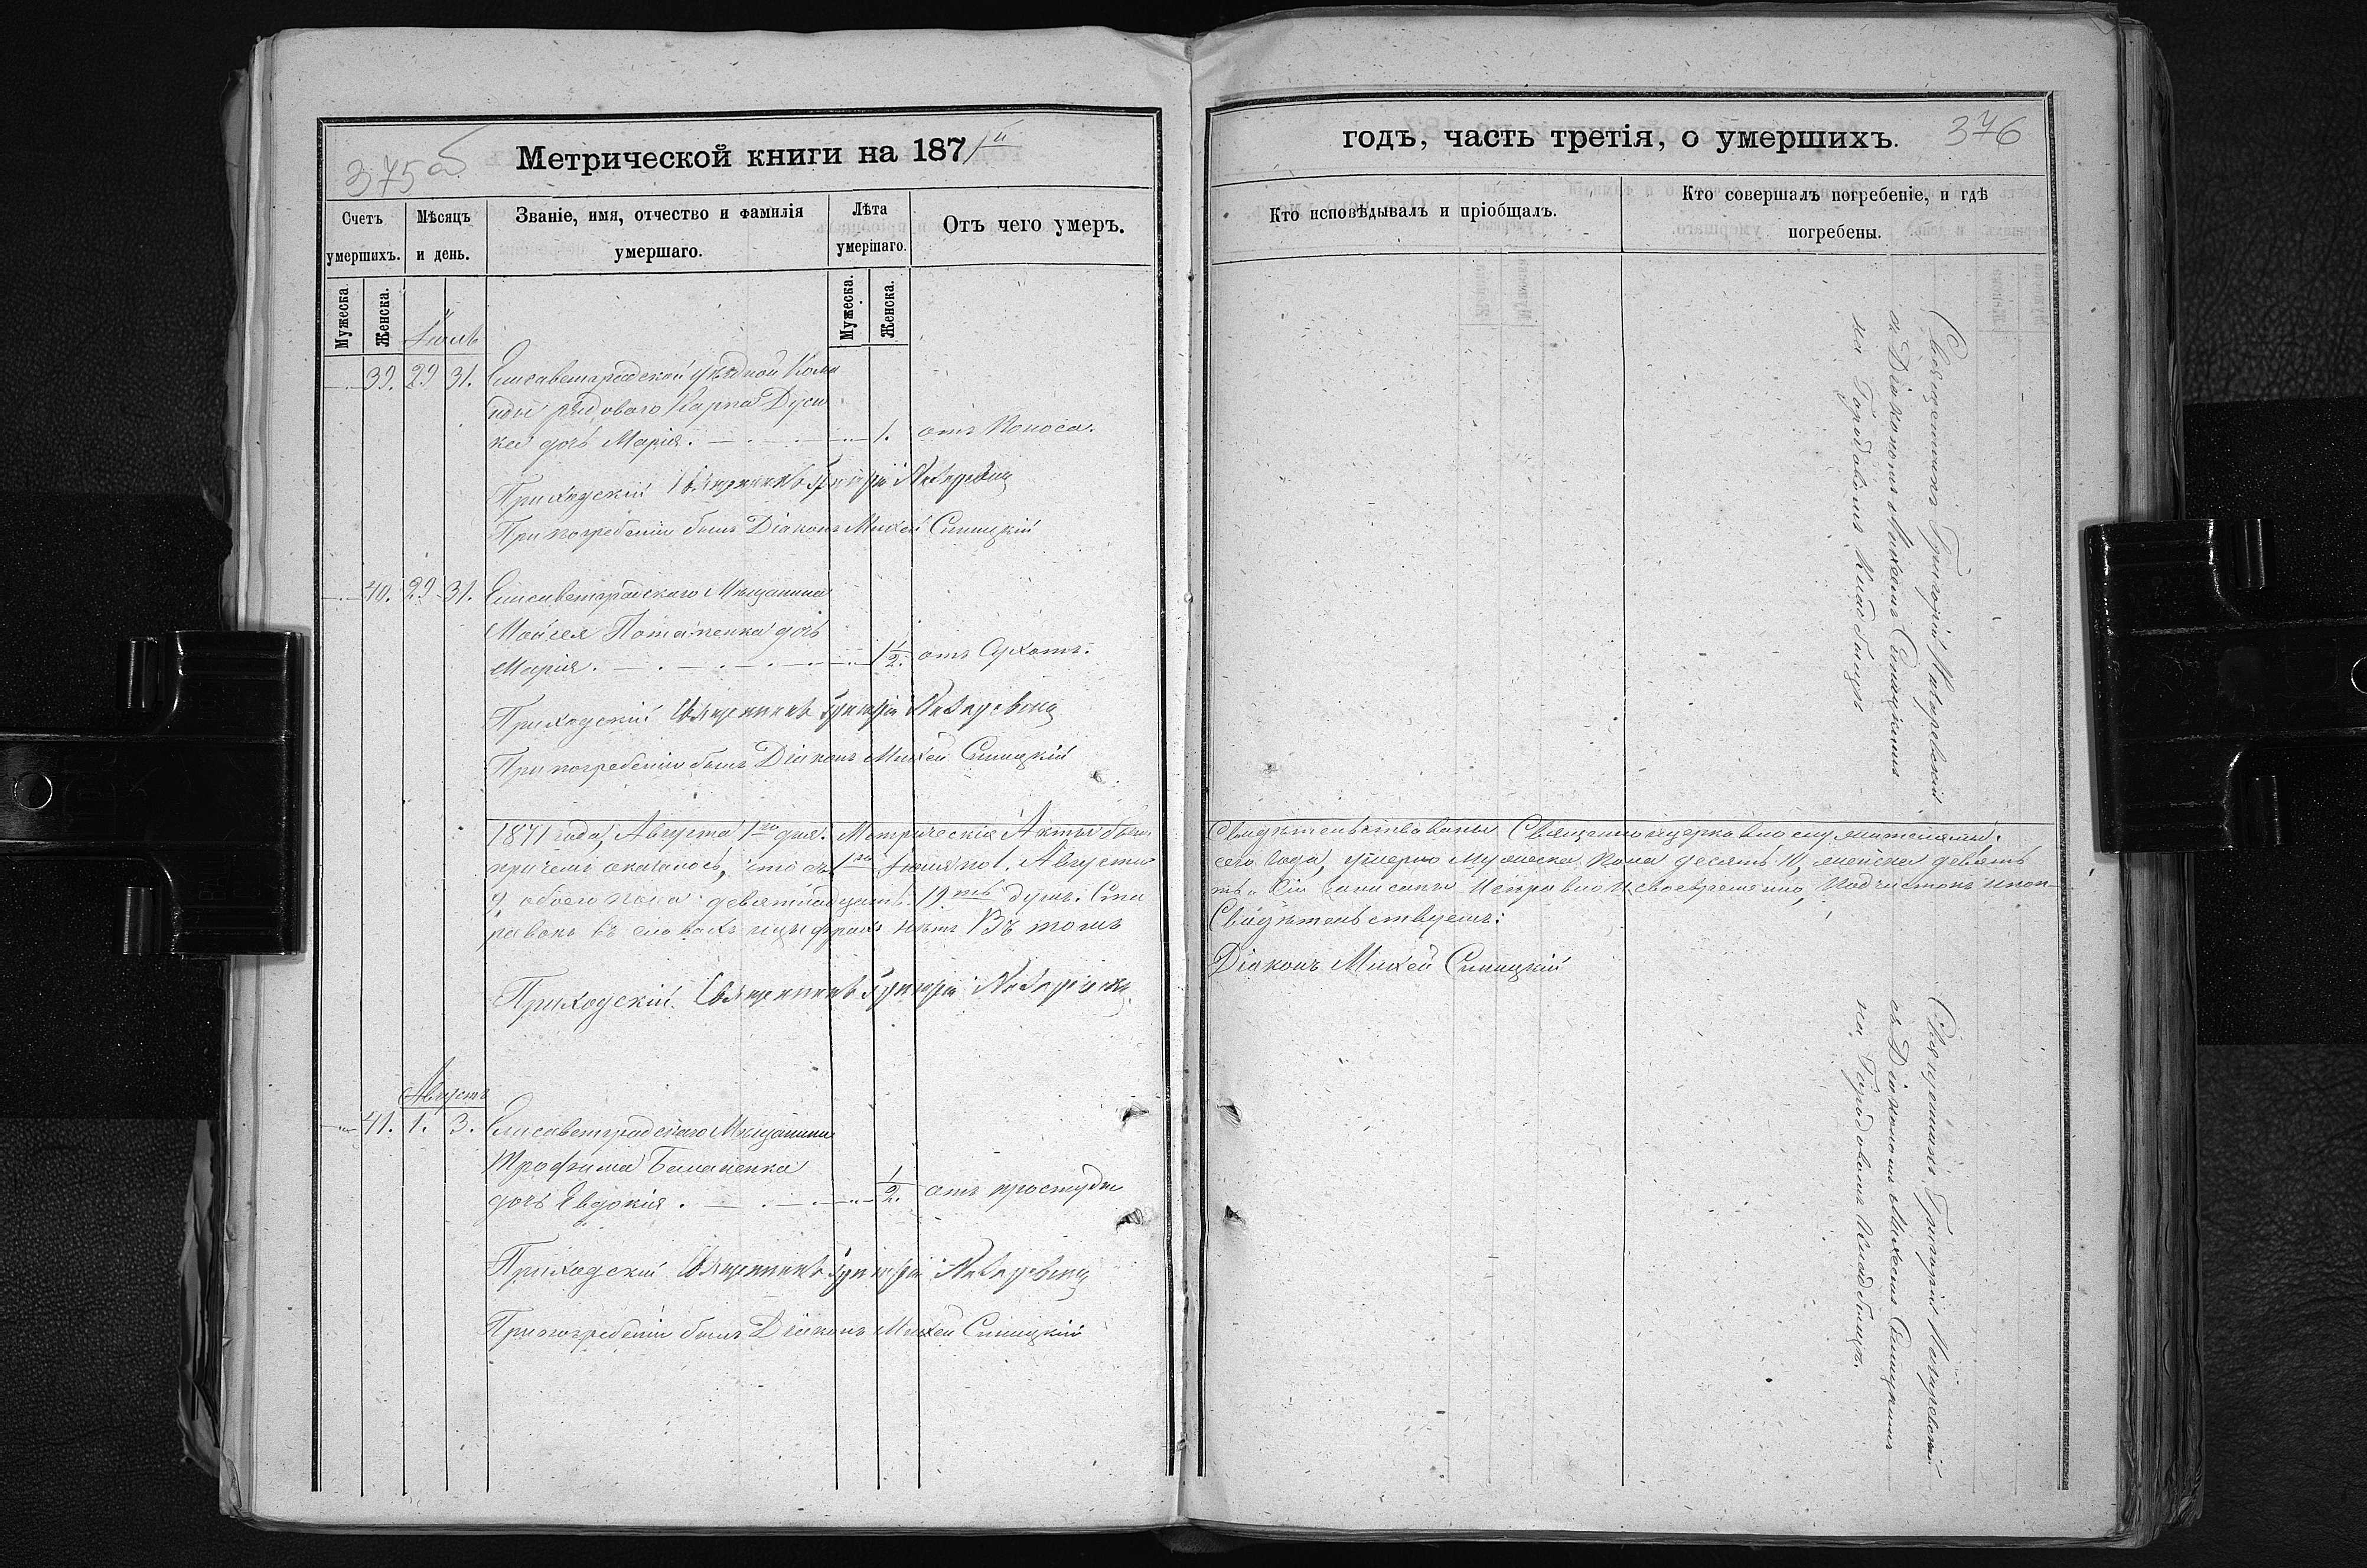 375 об
Метрической книги на 1871й
Счетъ умершихъ.
Мѣсяцъ и день.
Званіе, имя, отчество и фамилія умершаго.
Лѣта умершаго.
Отъ чего умеръ.
Мужеска.
Женска.
Мужеска.
Женска.
Іюль
39. 29 31. Елисаветградской уѣздной Кома
нды рядоваго Карпа Дуси
ка дочь Марія. 1. отъ Поноса.
Приходскій Священникъ Григорій
При погребеніи былъ Діаконъ Михей Синицкій
40. 29 31. Елисаветградскаго Мѣщанина
Мойсея Потапенка дочь
Марія. 1 1/2. отъ Сухотъ.
Приходскій Священникъ Григорій
При погребеніи былъ Діаконъ Михей Синицкій
1871 года, Августа 1го дня. Метрическіе Акты были
при чемъ оказалось, что съ 1го Іюля по 1. Августа
9, обоего пола девятнадцать 19ть душъ. Ста
равокъ въ словахъ и цыфрахъ нѣтъ Въ томъ
Приходскій Священникъ Григорій
Августъ
41. 1. 3. Елисаветградскаго Мѣщанина
Трофима
дочь Евдокія. 1/2. отъ простуды
Приходскій Священникъ Григорій
При погребеніи былъ Діаконъ Михей Синицкій
годъ, часть третія, о умершихъ. 376
Кто исповѣдывалъ и пріобщалъ.
Кто совершалъ погребеніе, и гдѣ погребены.
Священникъ Григорій
съ Діакономъ Михеемъ Синицкимъ
на Городовомъ Кладбищѣ
Свидѣтельствованы Священноцерковнослужителями,
сего года, умерло мужеска пола десять 10, женска девять
Сіи записаны исправно и своевременно, подчистокъ и поп-
Свидѣтельствуемъ:
Діаконъ Михей Синицкій
Священникъ Григорій
съ Діакономъ Михеемъ Синицкимъ
на Городовомъ Кладбищѣ.